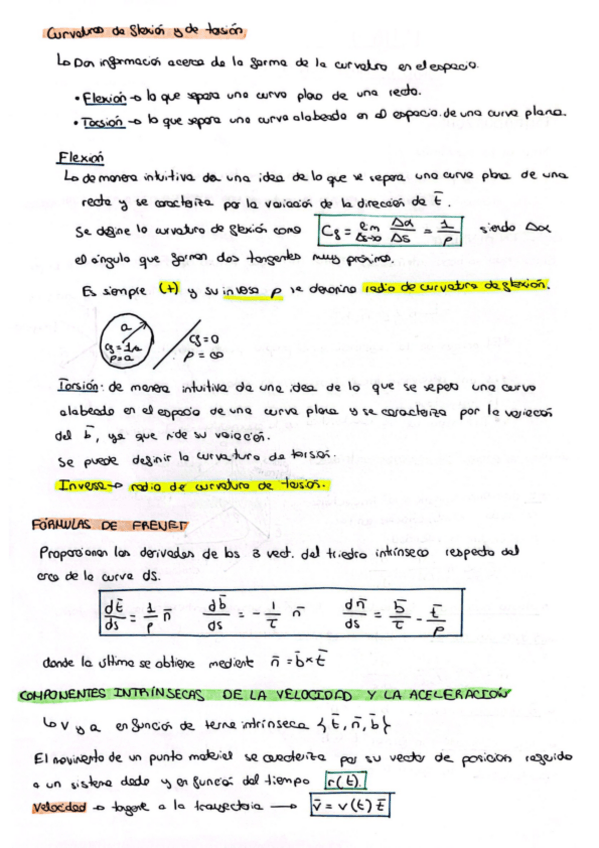 Curvaturas de flexión y de torsión
↳ Dan información acerca de la forma de la curvatura en el espacio.
• Flexión → lo que separa una curva plana de una recta.
• Torsión → lo que separa una curva alabeada en el espacio de una curva plana.
Flexión
↳ de manera intuitiva da una idea de lo que se separa una curva plana de una
recta y se caracteriza por la variación de la dirección de t̄.
Se define la curvatura de flexión como Cf = lím Δs→0 Δα/Δs = 1/ρ siendo Δα
el ángulo que forman dos tangentes muy próximas.
Es siempre (+) y su inversa ρ se denomina radio de curvatura de flexión.
a
Cf = 1/a
ρ = a
Cf = 0
ρ = ∞
Torsión: de manera intuitiva da una idea de lo que se separa una curva
alabeada en el espacio de una curva plana y se caracteriza por la variación
del b̄, ya que mide su variación.
Se puede definir la curvatura de torsión.
Inversa → radio de curvatura de torsión.
FÓRMULAS DE FRENET
Proporcionan las derivadas de los 3 vect. del triedro intrínseco respecto del
arco de la curva ds.
dt̄/ds = 1/ρ n̄   db̄/ds = - 1/τ n̄   dn̄/ds = b̄/τ - t̄/ρ
donde la última se obtiene mediente n̄ = b̄ x t̄
COMPONENTES INTRÍNSECAS DE LA VELOCIDAD Y LA ACELERACIÓN
↳ v y a en función de terna intrínseca {t̄, n̄, b̄}
El movimiento de un punto material se caracteriza por su vector de posición referido
a un sistema dado y en función del tiempo r(t).
Velocidad → tangente a la trayectoria → v̄ = v(t) t̄